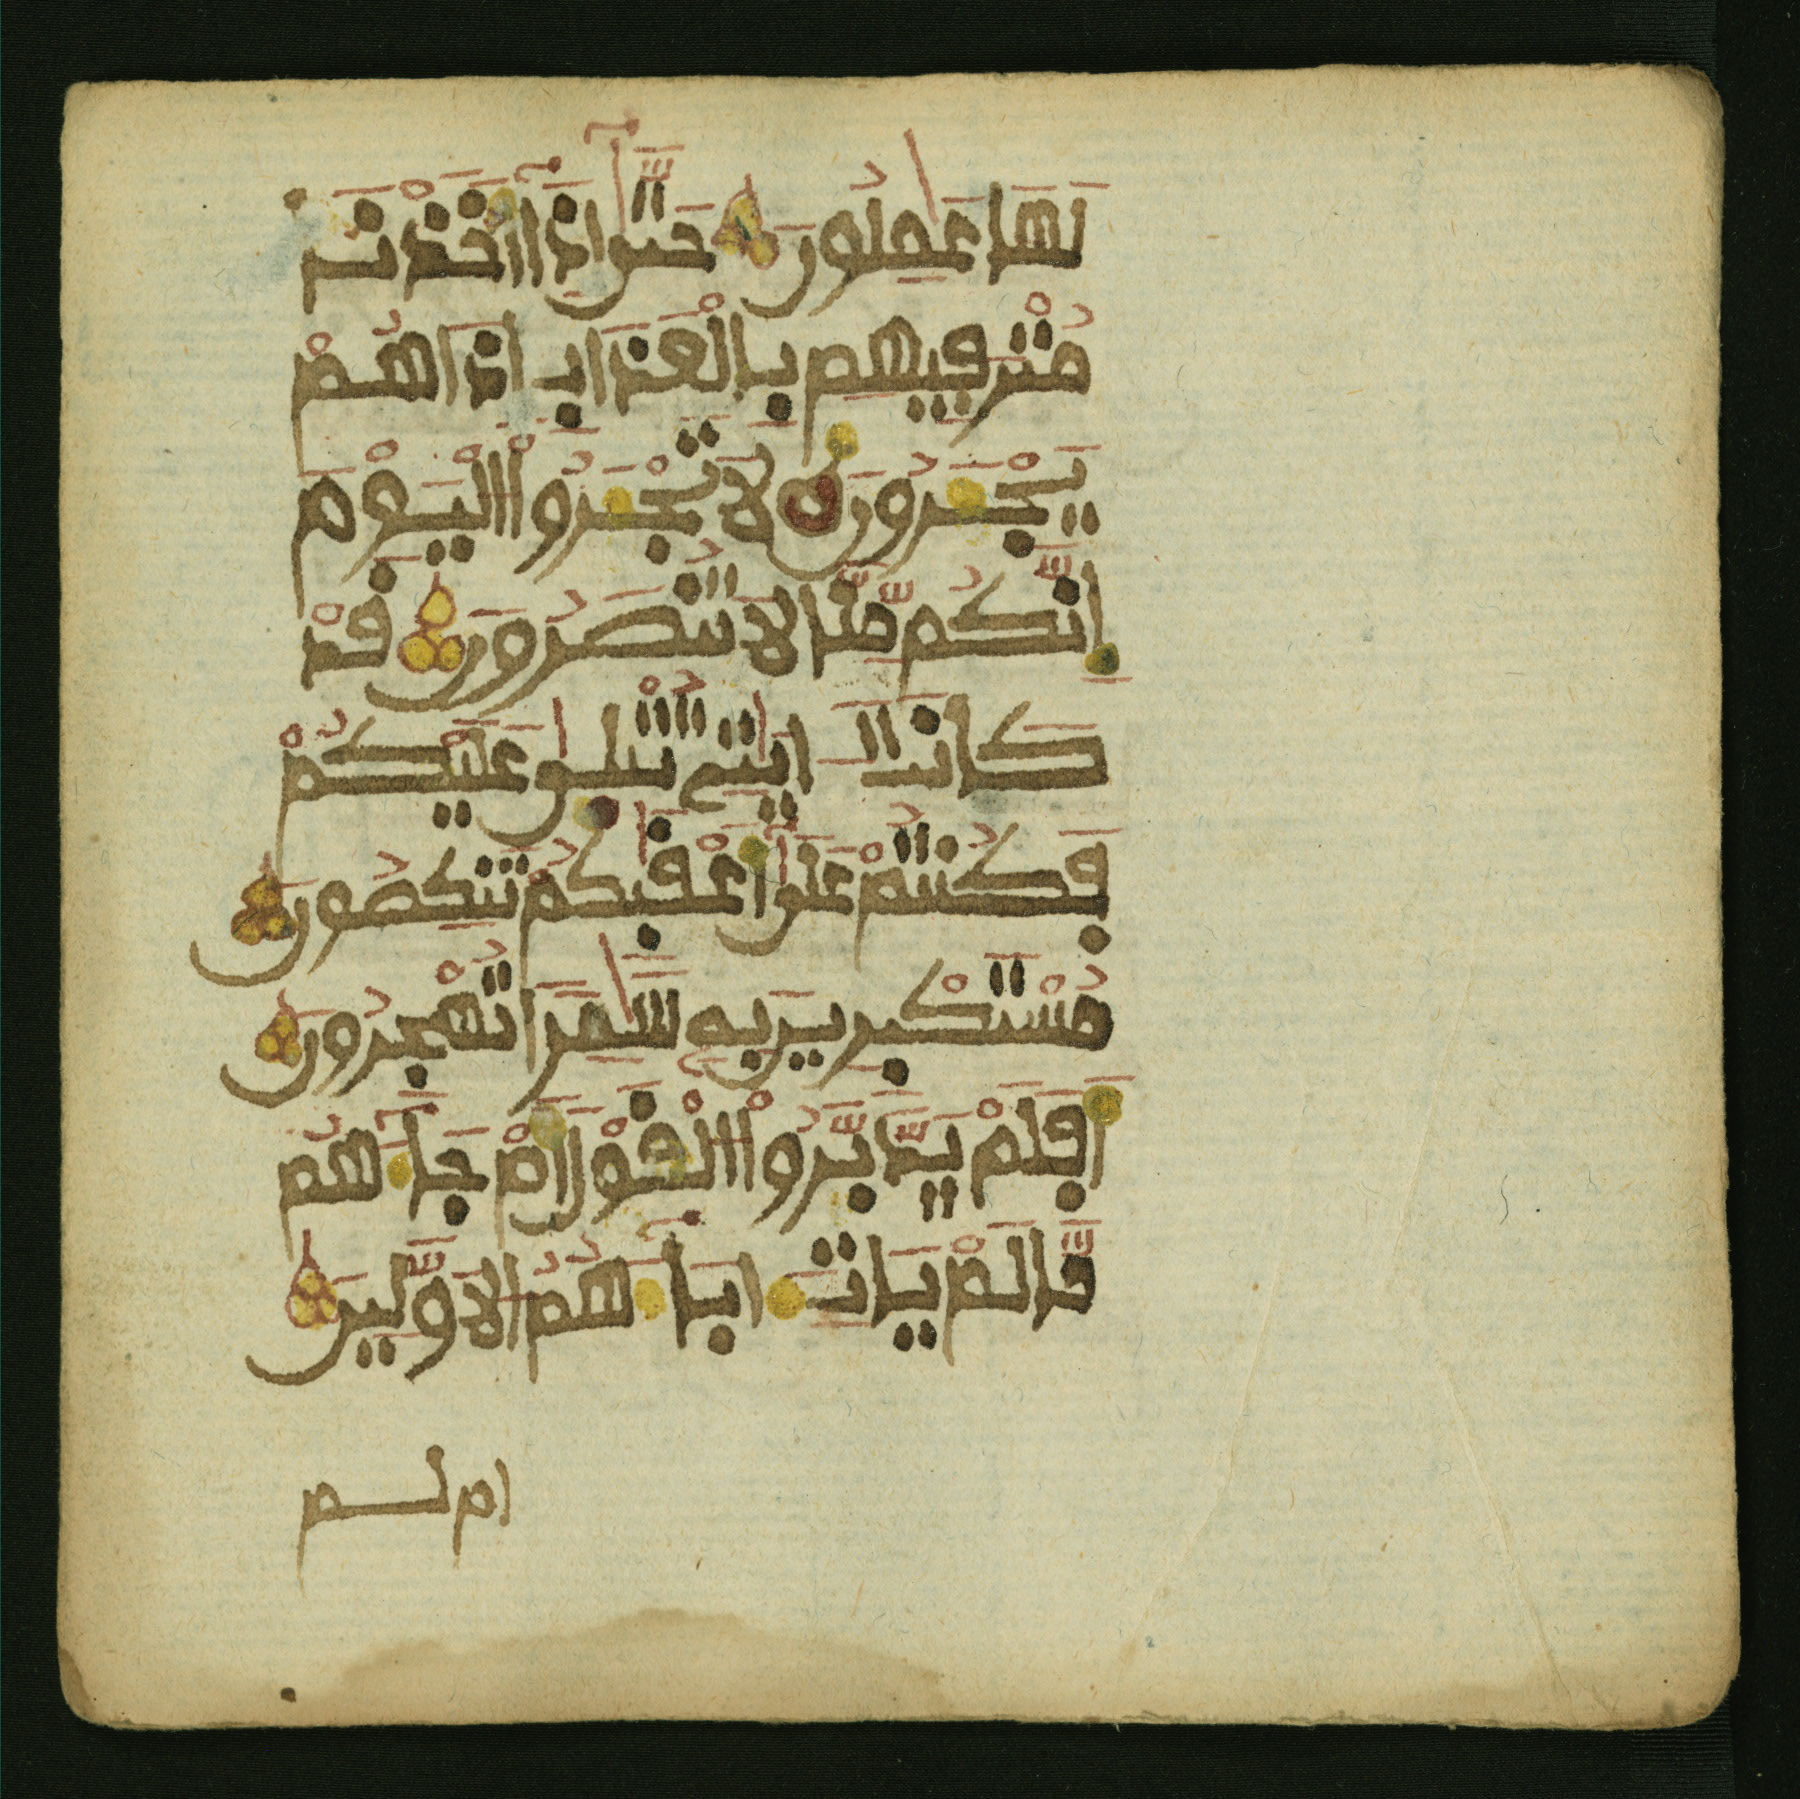 لَهَا عَٰمِلُونَ حَتَّىٰٓ إِذَآ أَخَذْنَا
مُتْرَفِيهِم بِالْعَذَابِ إِذَا هُمْ
يَجْـَٔرُونَ لَا تَجْـَٔرُوا۟ الْيَوْمَ
إِنَّكُم مِّنَّا لَا تُنصَرُونَ قَدْ
كَانَتَ ـايَٰتِے تُتْلَىٰ عَلَيْكُمْ
فَكُنتُمْ عَلَىٰٓ أَعْقَٰبِكُمْ تَنكِصُونَ
مُسْتَكْبِرِينَ بِهِۦ سَٰمِرًا تُهْجِرُونَ
أَفَلَمْ يَدَّبَّرُوا۟ الْقَوْلَ أَمْ جَآءَهُم
مَّا لَمْ يَاتِ ءَابَآءَهُمُ الَاوَّلِينَ
ام لم